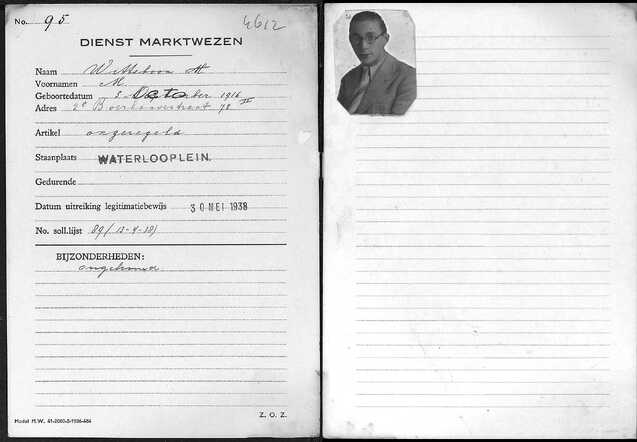 No. 95
4612
DIENST MARKTWEZEN
Naam Witteboon M
Voornamen M.
Geboortedatum 5 October 1916
Adres 2e Boerhaavestraat 78 II
Artikel ongeregeld
Staanplaats WATERLOOPLEIN.
Gedurende
Datum uitreiking legitimatiebewijs 30 MEI 1938
No. soll.lijst 89 (13-4-38)
BIJZONDERHEDEN:
ongehuwd
Model M.W. 41-2000-5-1936-684
Z. O. Z.